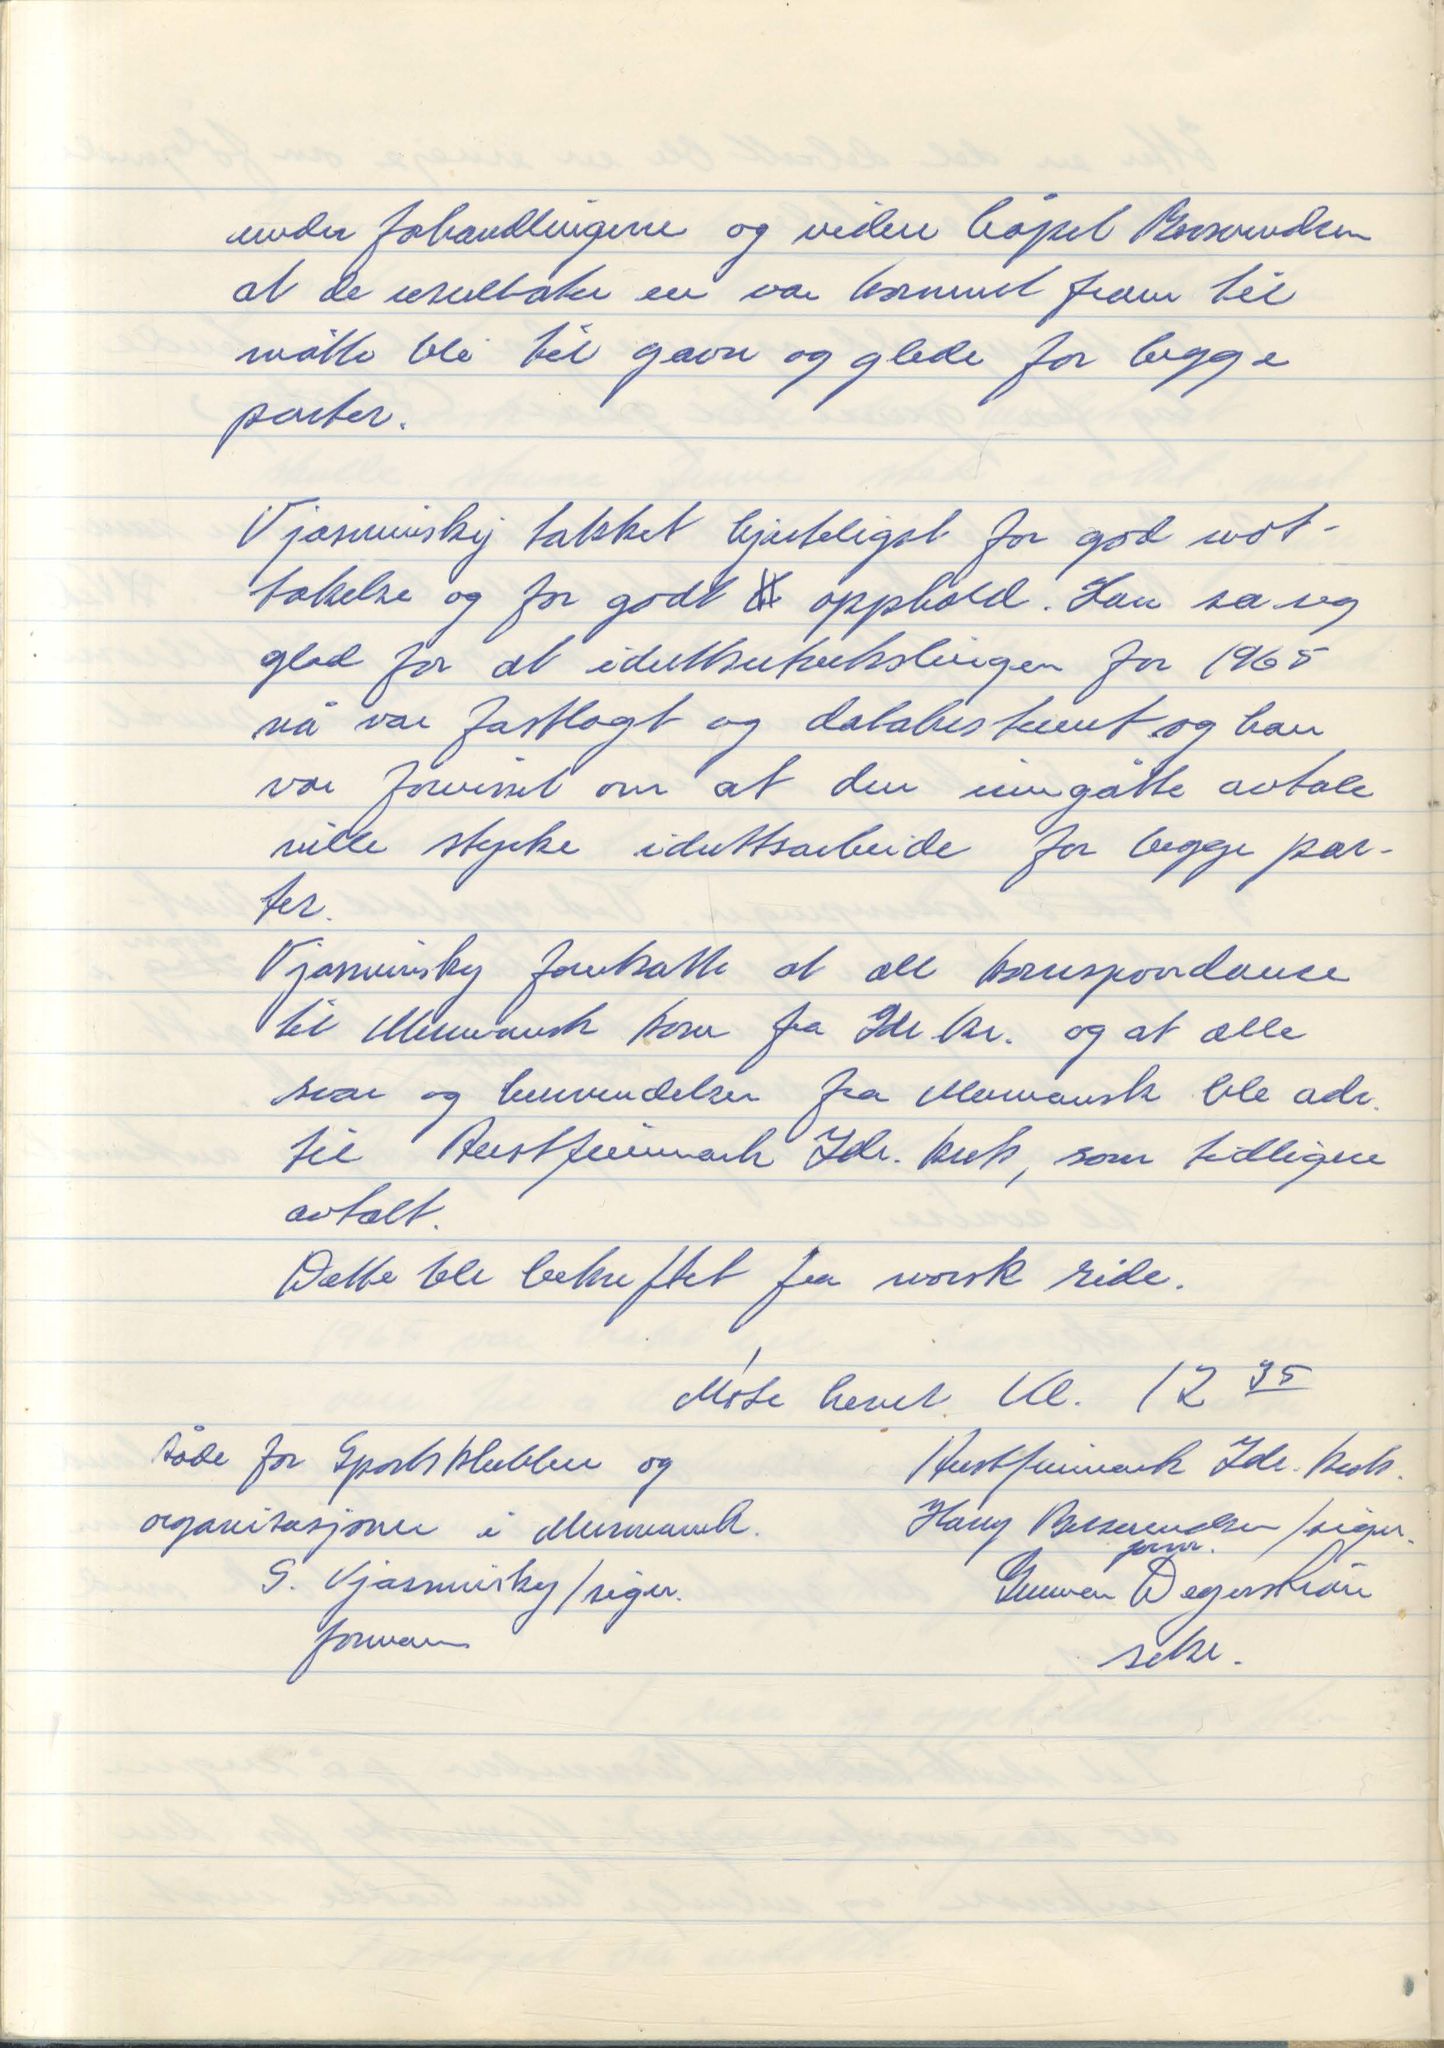 under forhandlingene og videre håpet Bernundsen
at de resultater en var kommet fram til
måtte bli til gavn og glede for begge
parter.
Vjasminskij takket hjerteligst for god mot-
takelse og for godt opphold. Han sa seg
glad for at idrettsutvekslingen for 1965
nå var fastlagt og databestemt og han
var forvisset om at den inngåtte avtale
ville styrke idrettsarbeide for begge par-
ter.
Vjasminsky foretsatte at all korrespondanse
til Murmansk kom fra Idr. kr. og at alle
svar og henvendelser fra Murmansk ble adr.
til Austfinnmark Idr. krets, som tidligere
avtalt.
Dette ble bekreftet fra norsk side.
Møte hevet kl. 12 35
Råde for Sportsklubber og
organisasjoner i Murmansk.
S. Vjasminsky/sign.
formann
Austfinnmark Idr. krets.
Harry /sign.
form.
Gunnar Degerstrøm
sekr.